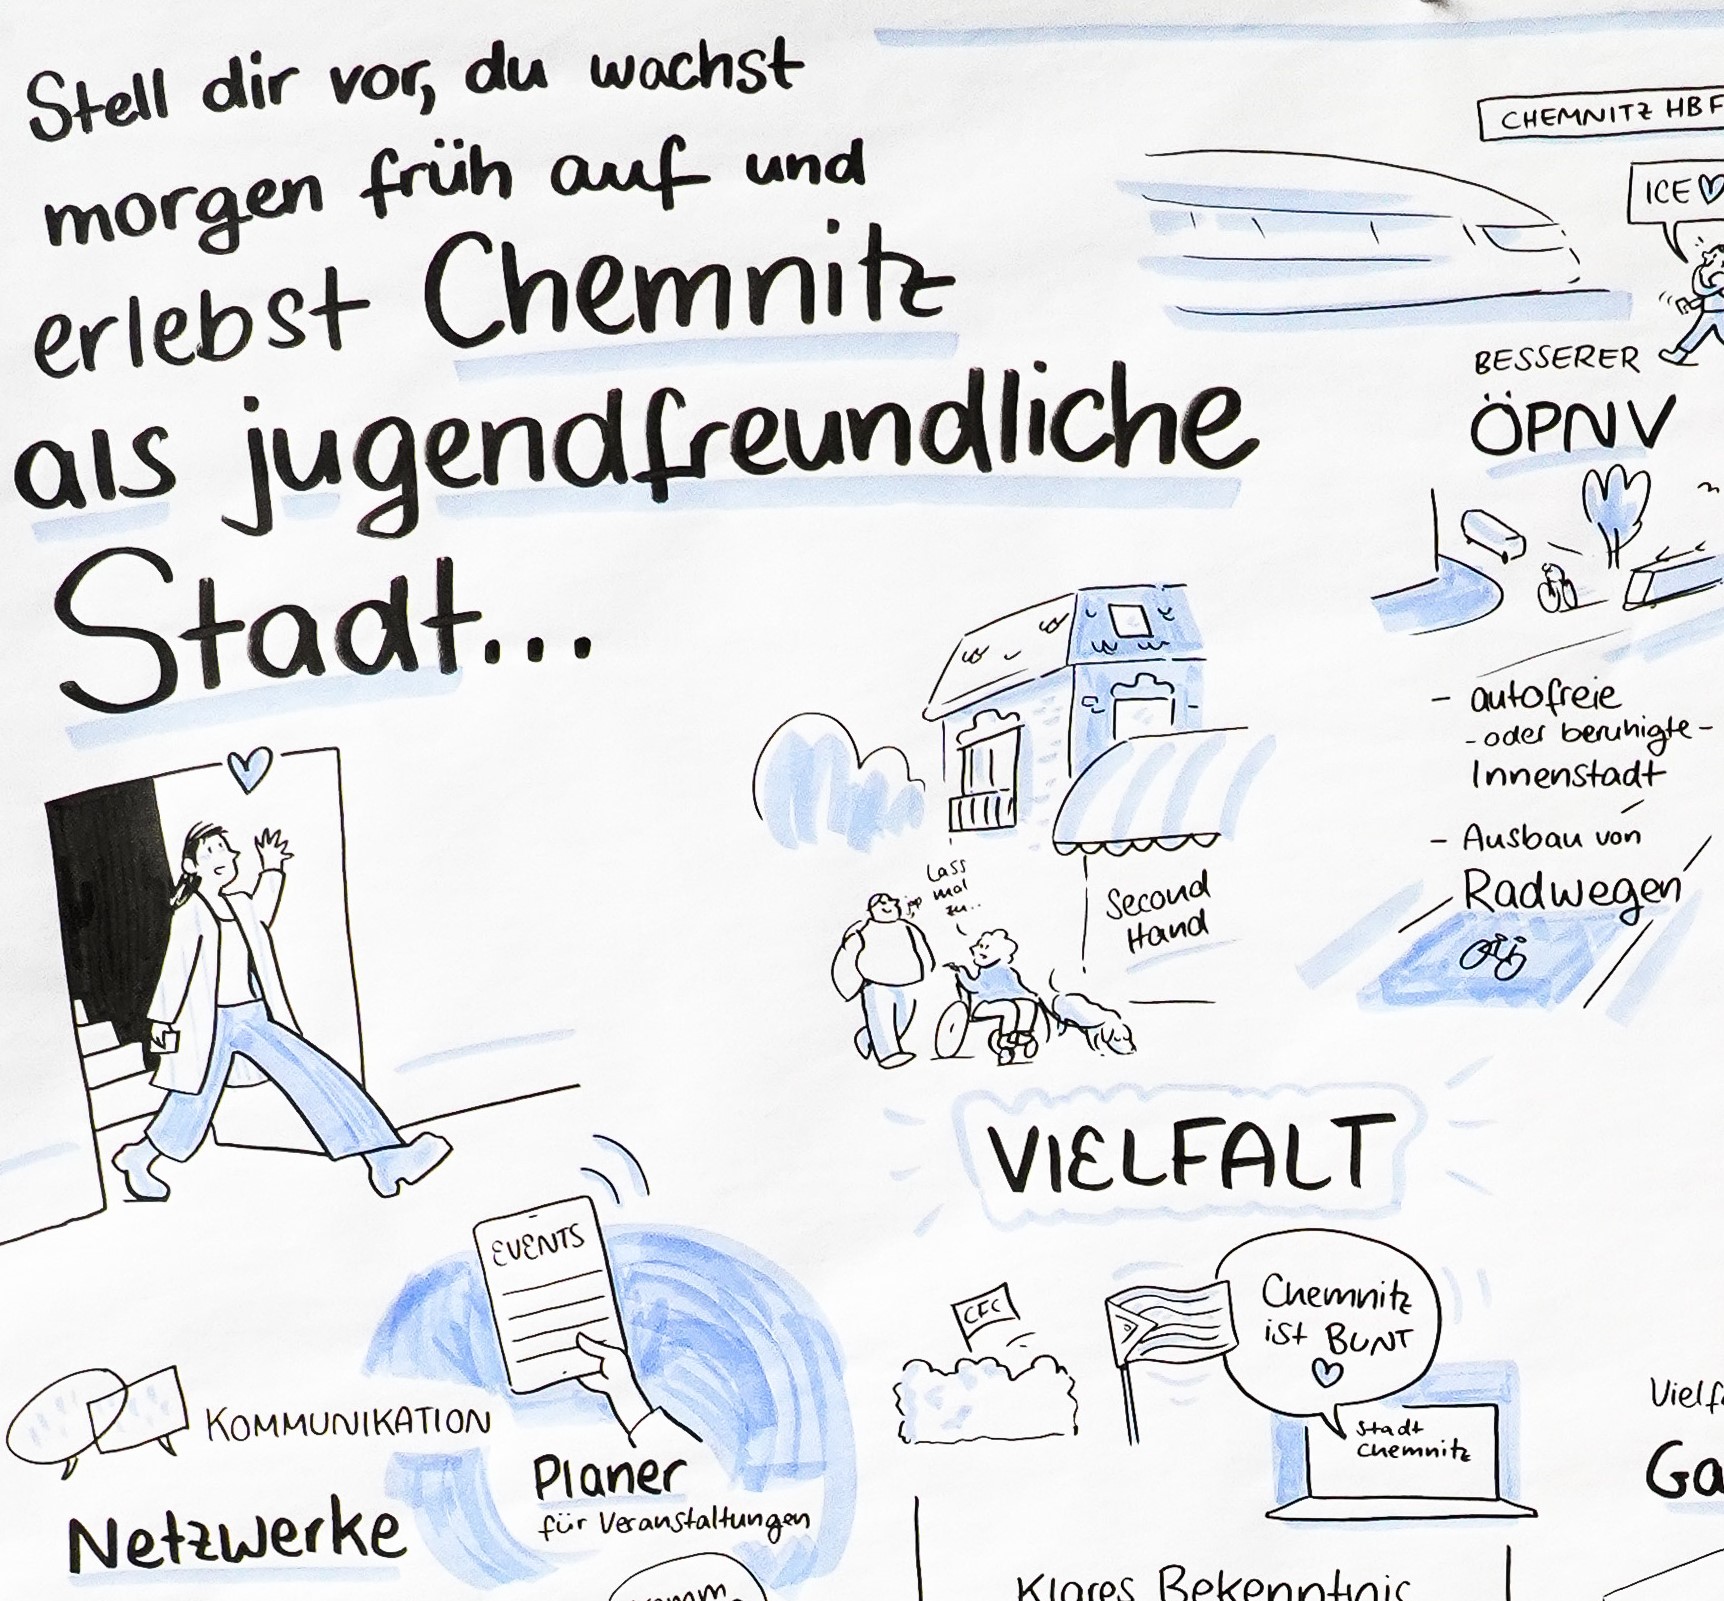 Stell dir vor, du wachst
morgen früh auf und
erlebst Chemnitz
als jugendfreundliche
Stadt...
CHEMNITZ HBF
ICE
BESSERER
ÖPNV
- autofreie
- oder beruhigte -
Innenstadt
- Ausbau von
Radwegen
Lass
mal
zu..
Second
Hand
VIELFALT
EVENTS
KOMMUNIKATION
Planer
für Veranstaltungen
Netzwerke
CFC
Chemnitz
ist BUNT
Stadt
Chemnitz
Klares Bekenntnis